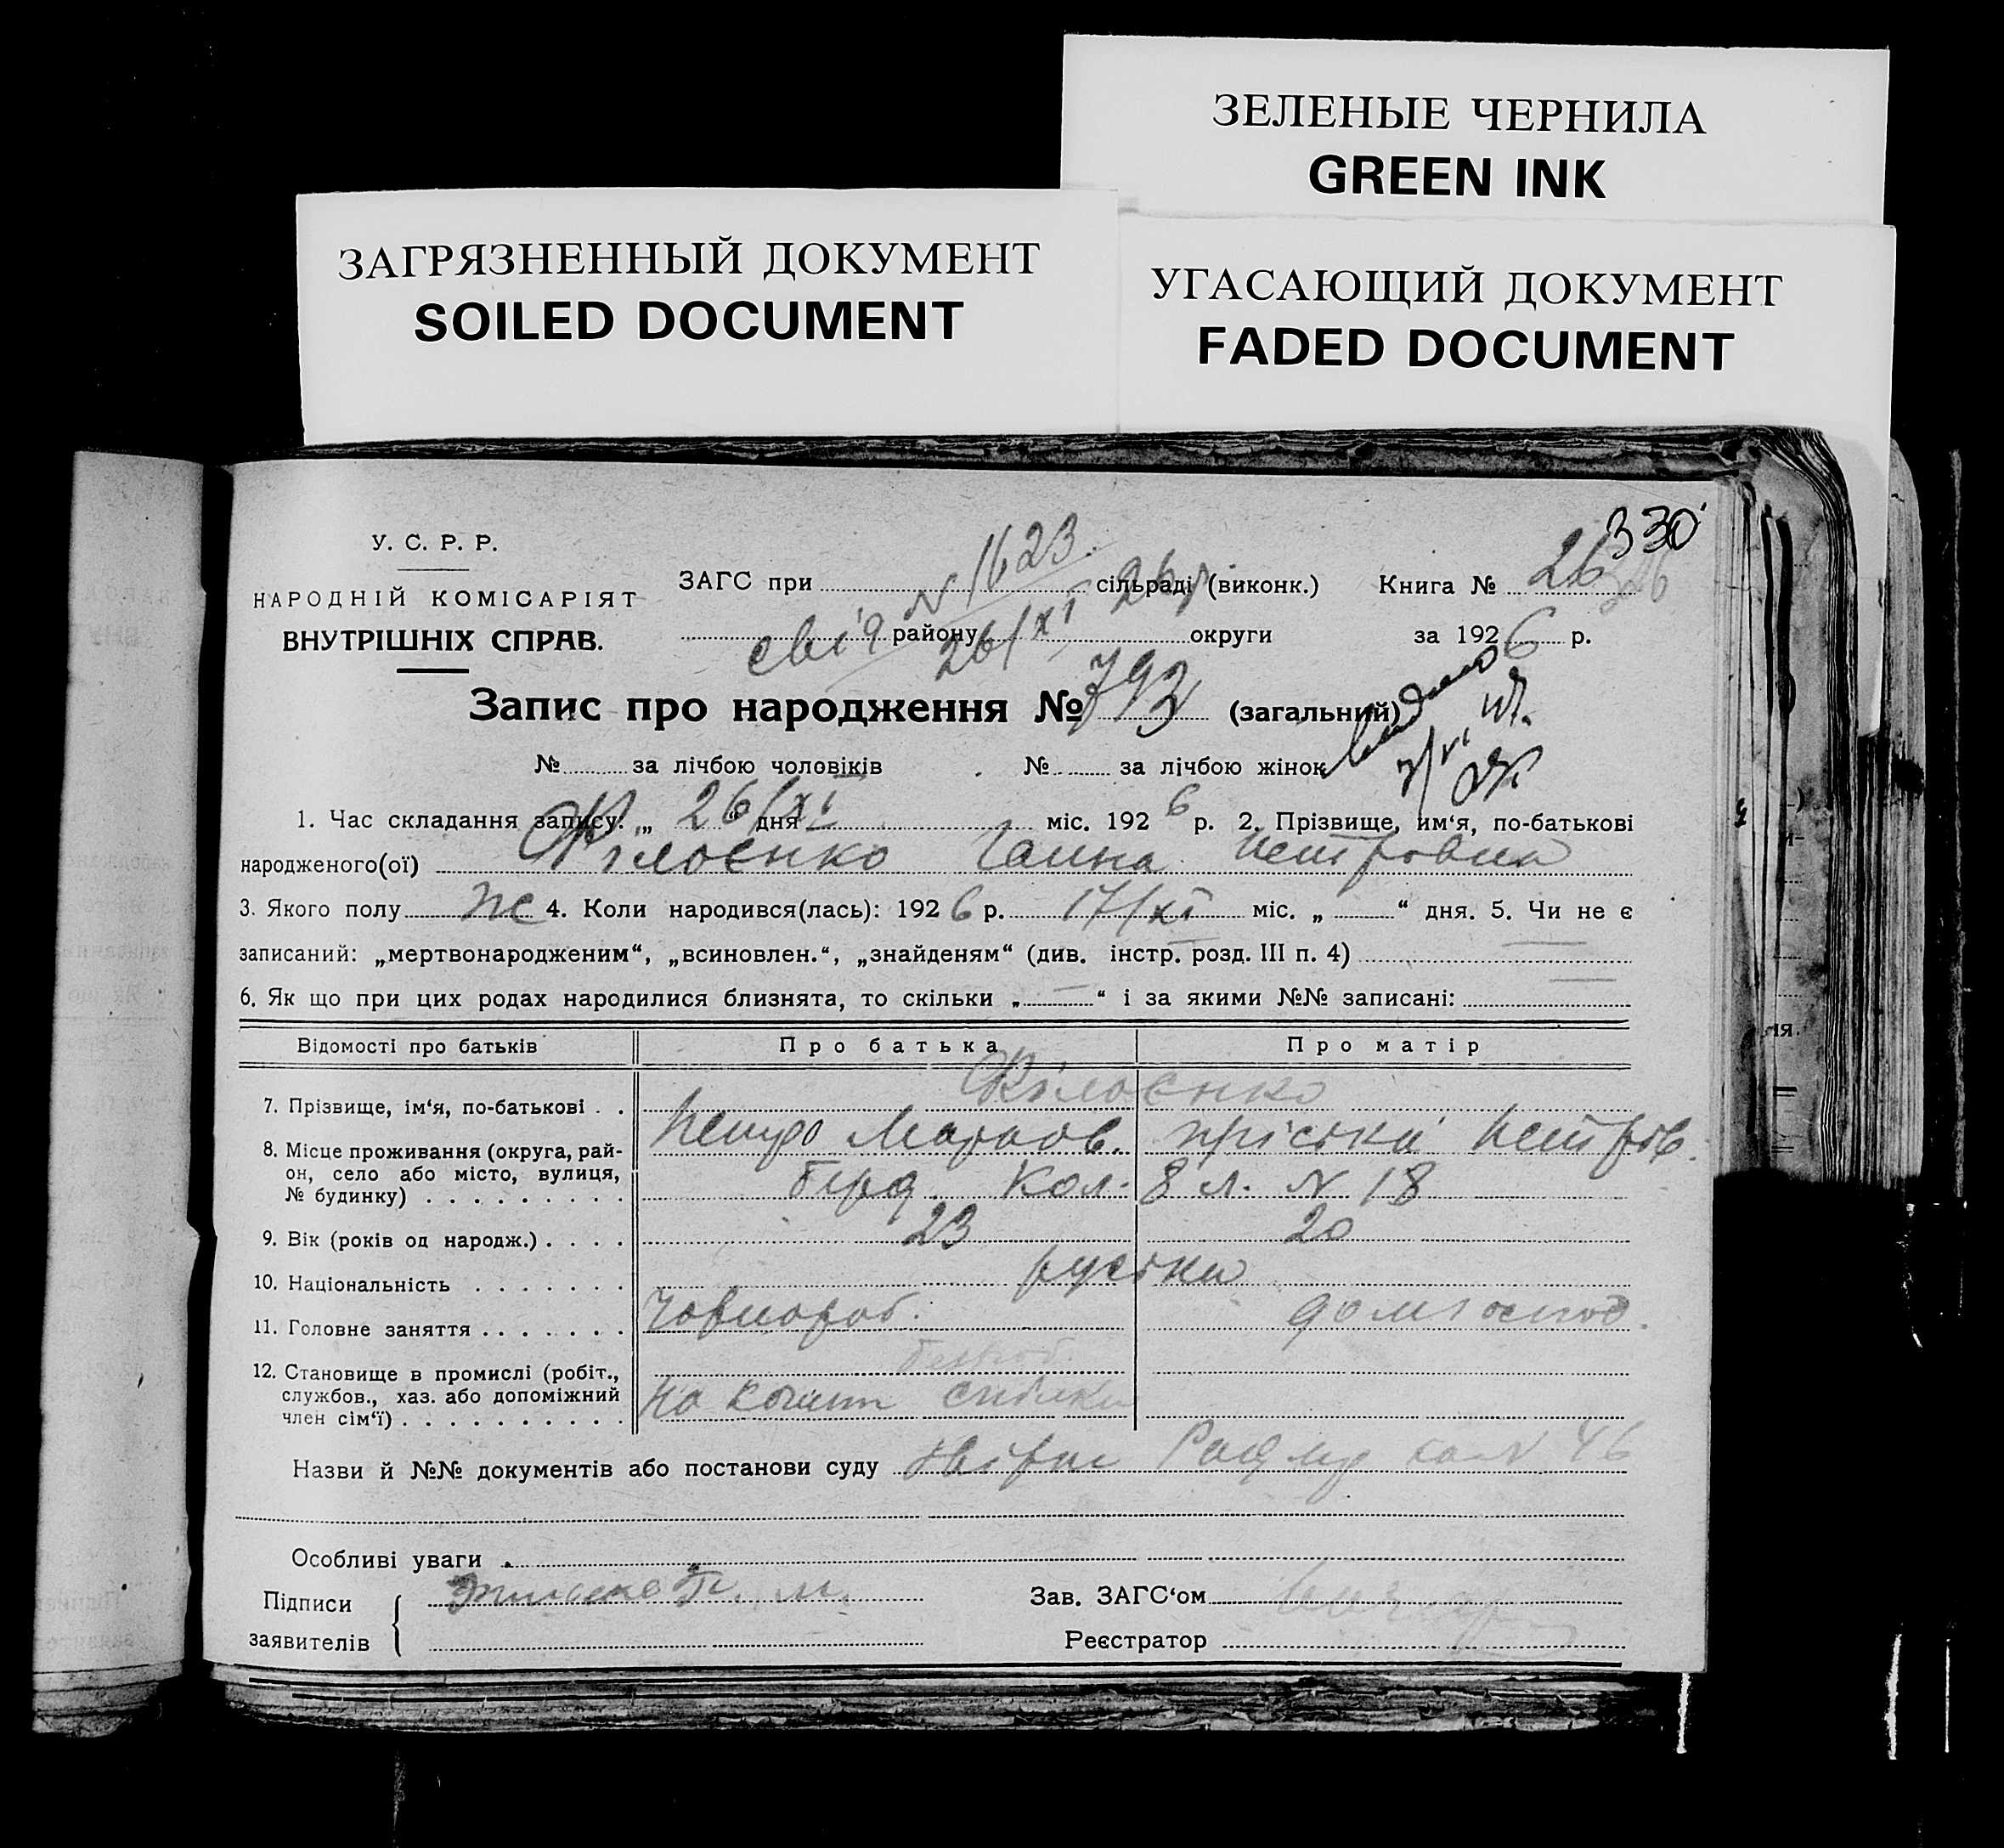 ЗЕЛЕНЫЕ ЧЕРНИЛА
GREEN INK
ЗАГРЯЗНЕННЫЙ ДОКУМЕНТ
SOILED DOCUMENT
УГАСАЮЩИЙ ДОКУМЕНТ
FADED DOCUMENT
330
У. С. Р. Р.
НАРОДНІЙ КОМІСАРІЯТ
ВНУТРІШНІХ СПРАВ.
ЗАГС при сільраді (виконк.) Книга № 26
N 1623
району округи за 1926 р.
26/XI 26 р.
Запис про народження № 793 (загальний)
№ за лічбою чоловіків № за лічбою жінок
1. Час складання запису. „ 26/XI “ дня міс. 1926 р. 2. Прізвище, им‘я, по-батькові
народженого(ої) Ганна Петровна
3. Якого полу Ж 4. Коли народився(лась): 1926 р. 17/XI міс. „ “ дня. 5. Чи не є
записаний: „мертвонародженим“, „всиновлен.“, „знайденям“ (див. інстр. розд. III п. 4)
6. Як що при цих родах народилися близнята, то скільки „ — “ і за якими №№ записані:
Відомості про батьків Про батька Про матір
7. Прізвище, ім‘я, по-батькові . .
Петро Марков. Пріська Петров.
8. Місце проживання (округа, рай-
он, село або місто, вулиця,
№ будинку) . . . . . . . . . Кол. 8 л. N 18
9. Вік (років од народж.) . . . . 23 20
10. Національність . . . . . . . руські
11. Головне заняття . . . . . . . Чорнороб. домгоспод.
безроб.
12. Становище в промислі (робіт.,
службов., хаз. або допоміжний
член сім‘ї) . . . . . . . . . . На кошти спілки
Назви й №№ документів або постанови суду 46
Особливі уваги
Підписи
заявителів
Зав. ЗАГС‘ом
Реєстратор